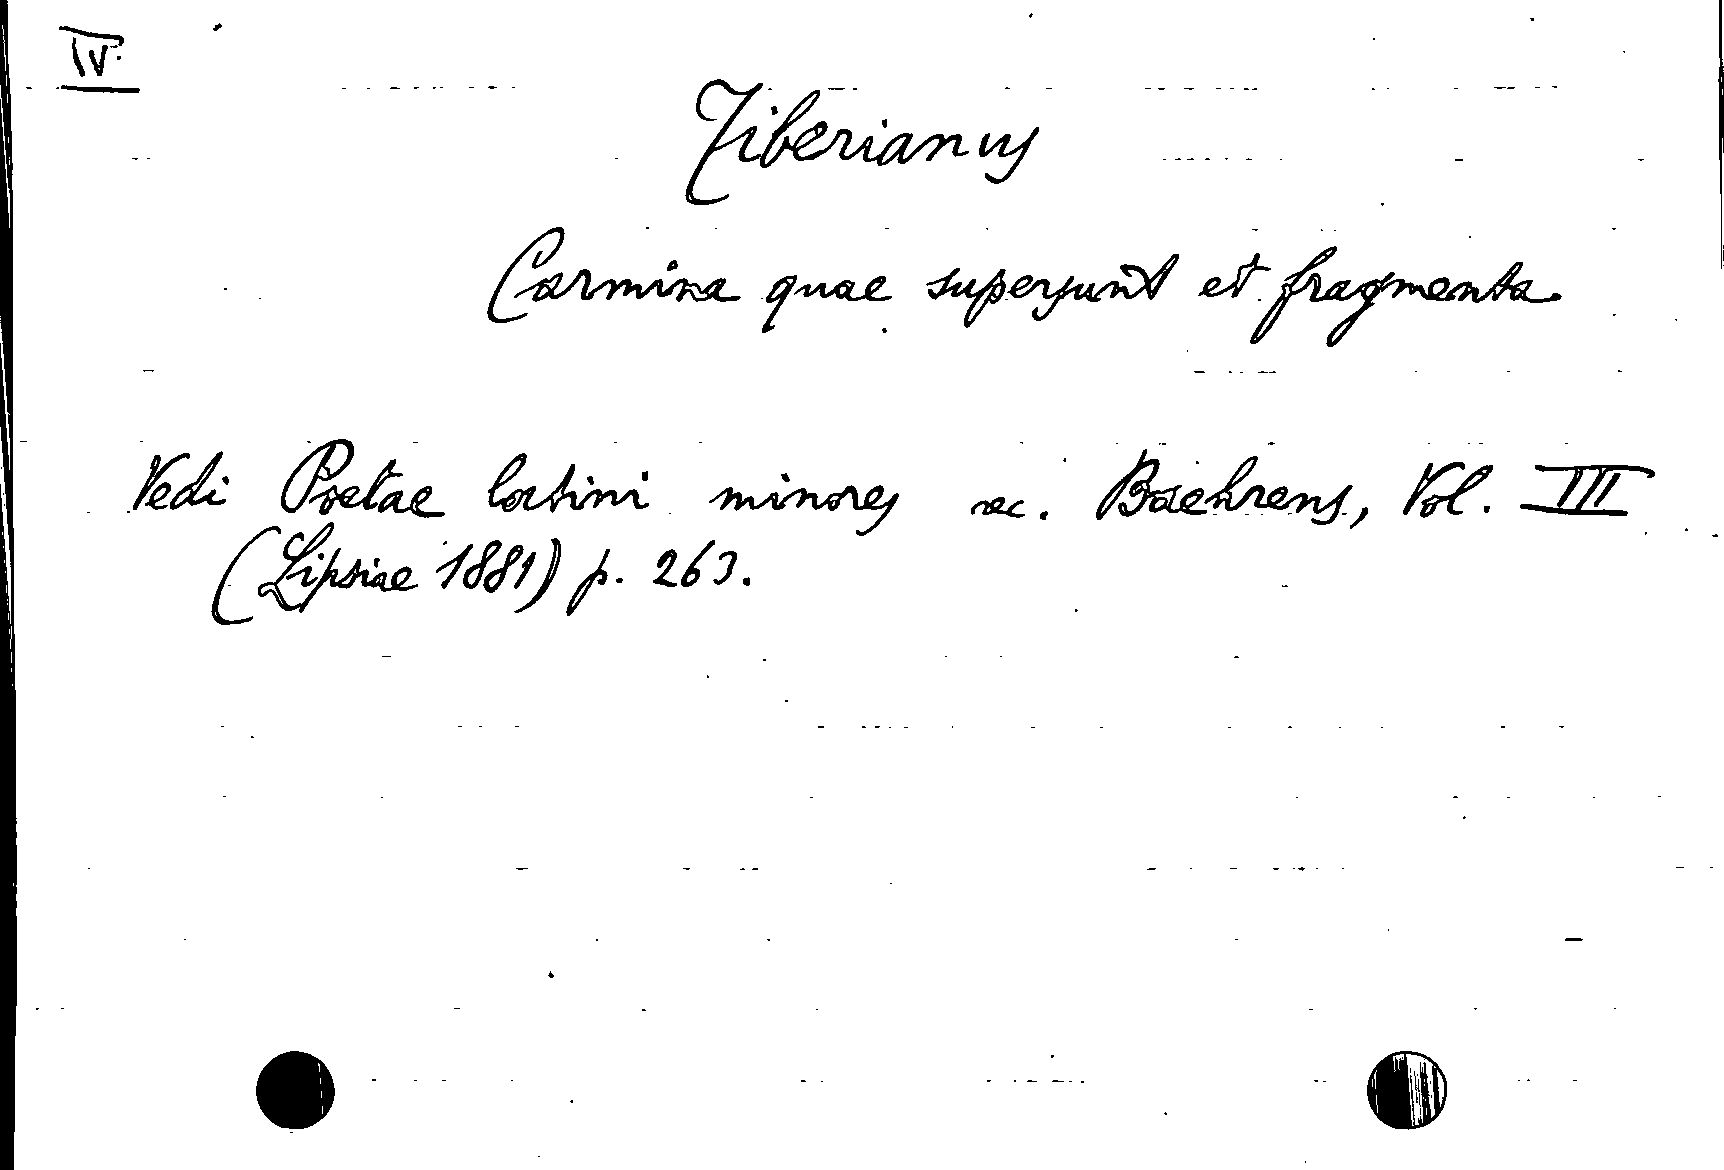 IV.
Tiberianus
Carmina quae supersunt et fragmenta.
Vedi Poetae latini minores rec. Baehrens, Vol. III
(Lipsiae 1881) p. 263.